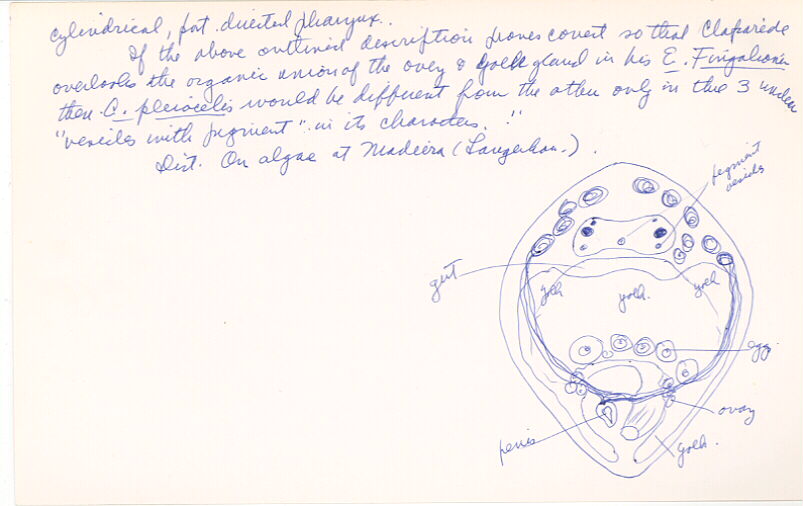 cylindrical, post. directed pharynx.
If the above outlined description proves correct so that Claparède
overlooks the organic union of the ovary & yolk gland in his E. Fingalianum
then A. pleiocelis would be different from the other only in the 3 under
"vesicles with pigment" in its characters. !"
Dist. On algae at Madeira (Langerhan.).
pigment
vesicles
gut
yolk
yolk.
yolk
egg
ovary
penis
yolk.